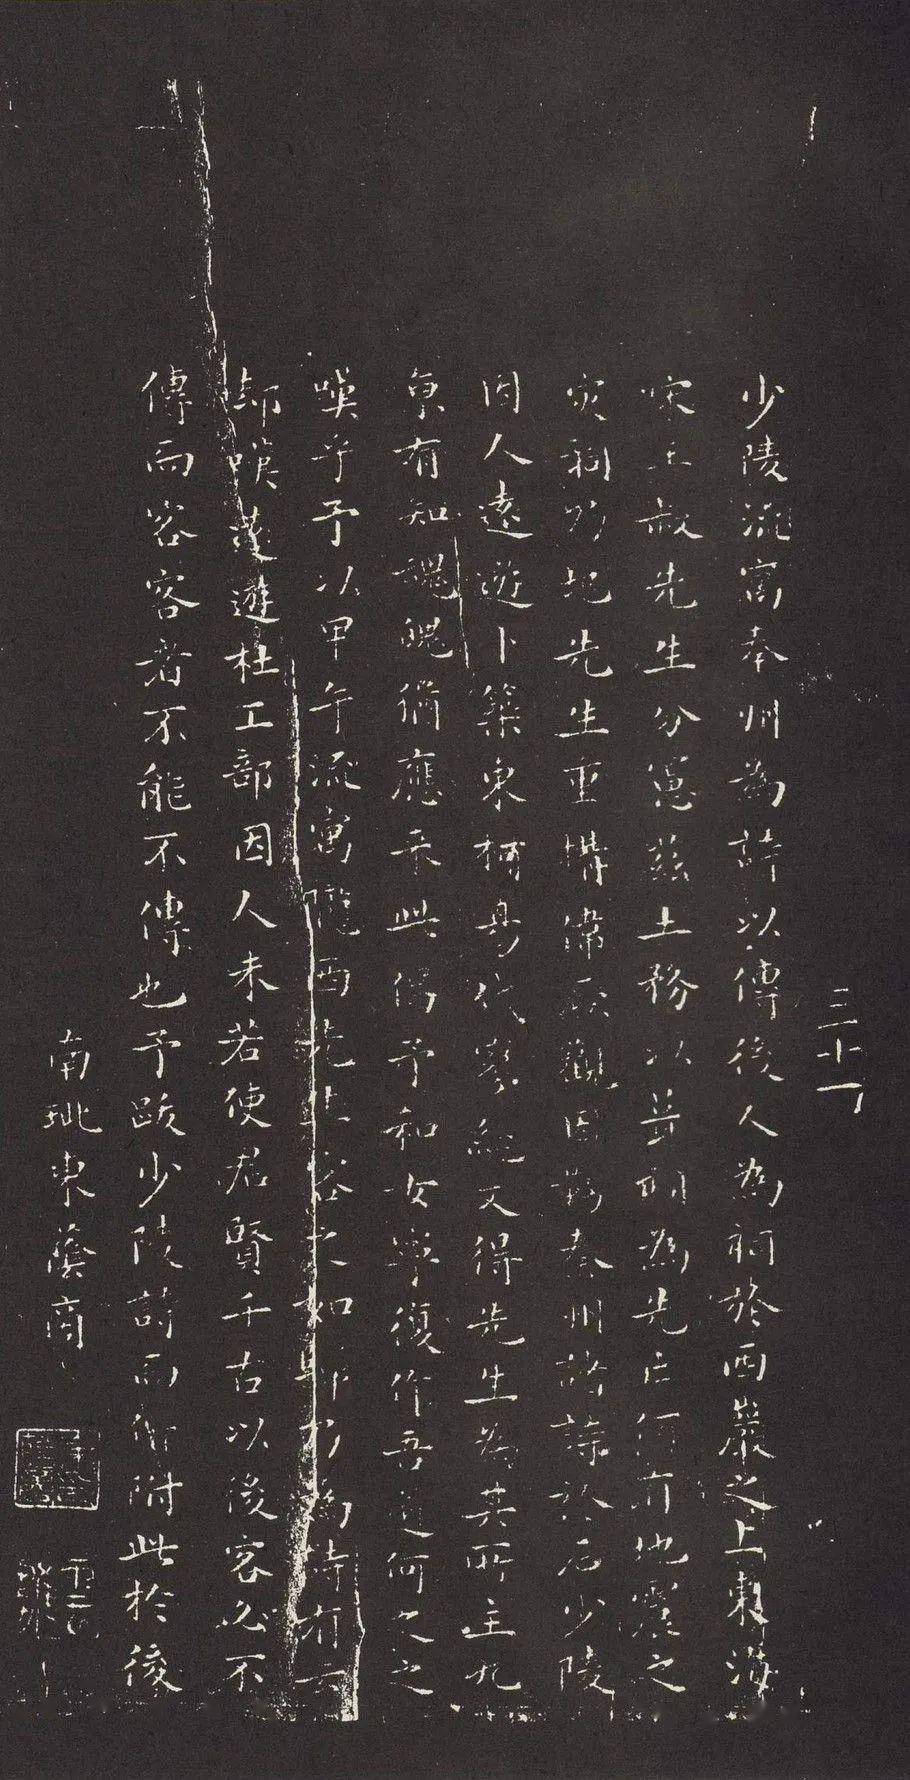 三十一
少陵流寓秦州為詩以傳後人為祠於西巖之上東海
宋玉叔先生分憲茲土務以昔明為先亡何有地震之
灾祠乃圮先生重搆偉厥觀因勒秦州諸詩於石少陵
因人遠遊卜築東柯身代寥絕又得先生為其所主九
泉有知魂魄猶應來此偈予和女率復作吾道何之之
嘆乎予以甲午流寓隴西先生客之如郭乃為詩有云
却嘆遠遊杜工部因人未若使君賢千古以後客必不
傳而客客者不能不傳也予跋少陵詩而并附此於後
南玭東蔭商